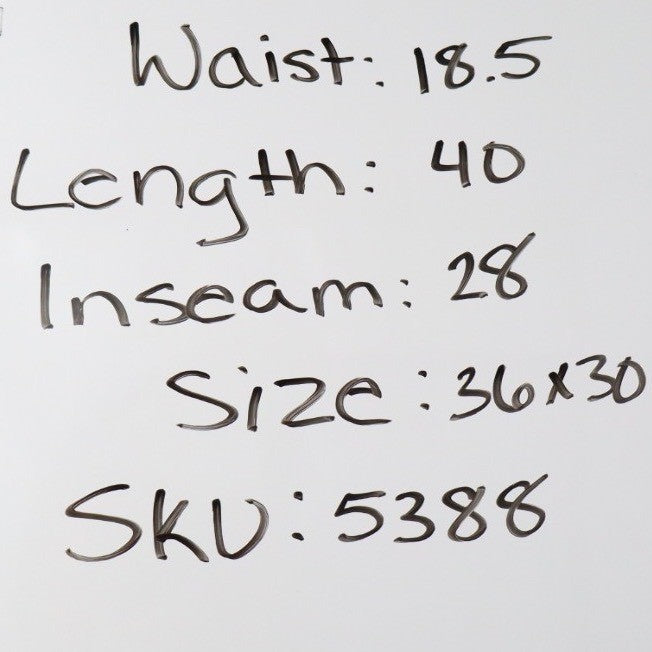 Waist: 18.5
Length: 40
Inseam: 28
Size: 36x30
SKU: 5388